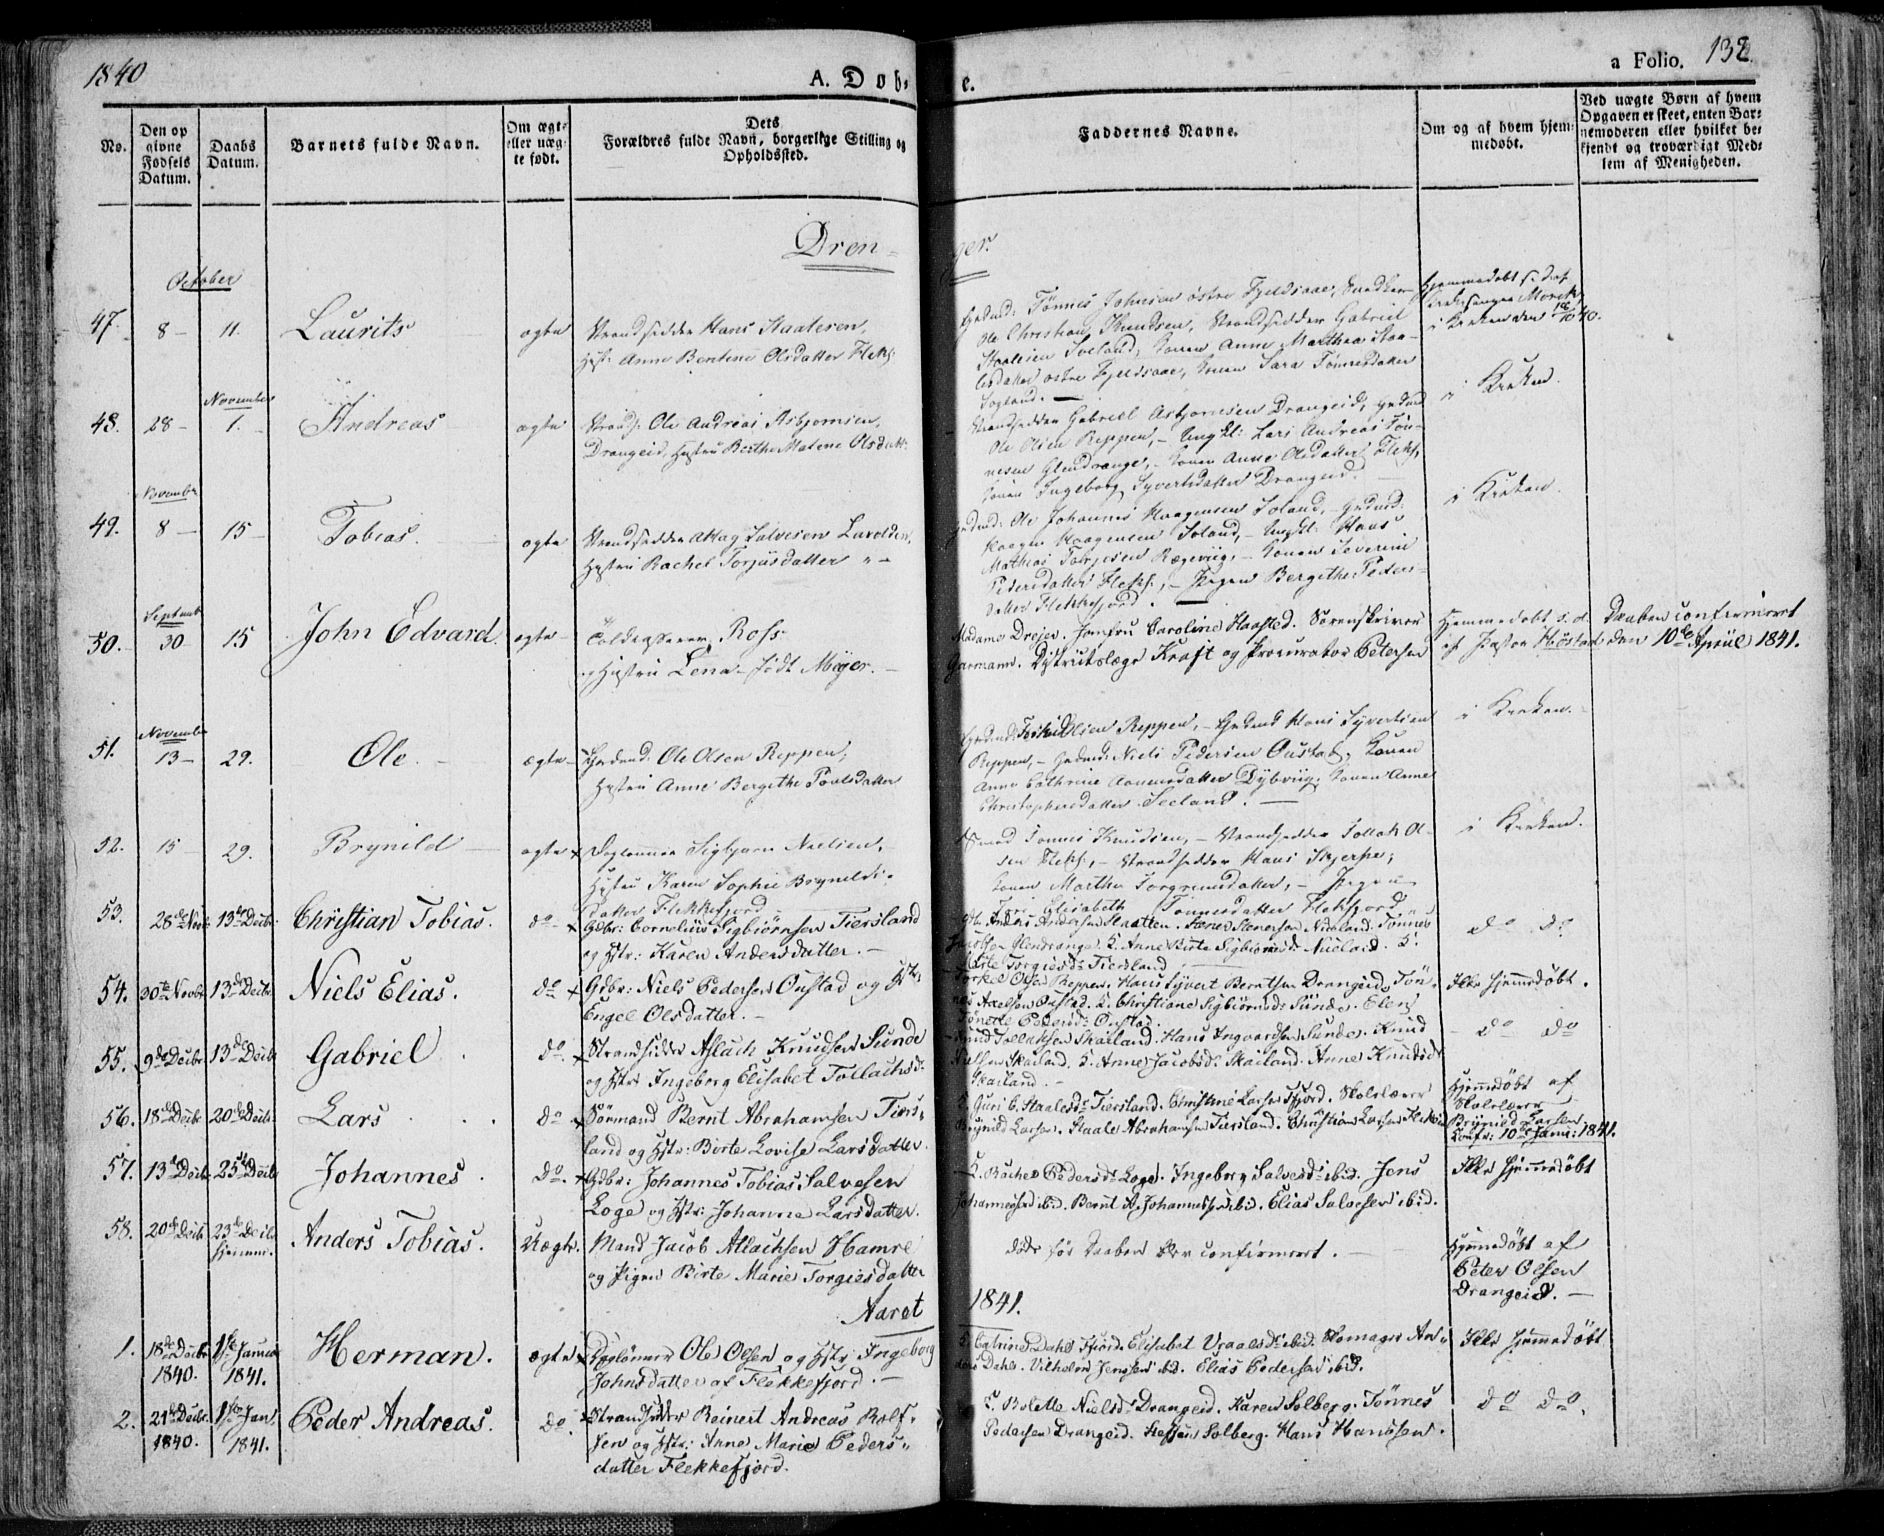 1840
A. Døb-
e.
a Folio. 132.
No.
Den op
givne
Fødsels
Datum.
Daabs
Datum.
Barnets fulde Navn.
Om ægte
eller uæg-
te født.
Dets
Forældres fulde Navn, borgerlige Stilling og
Opholdssted.
Faddernes Navne.
Om og af hvem hjem-
medøbt.
Ved uægte Børn af hvem
Opgaven er skeet, enten Bar-
nemoderen eller hvilket be-
kjendt og troværdigt Med-
lem af Menigheden.
Dren-
ger.
October
47. 8 - 11. Laurits ægte Strandsidder Hans Staalesen,
Hust: Anne Bentine Olsdatter Flekf:
Grdmd: Tønnes Johnsen østre Fjeldsaae, Snedker
Ole Christian Knudsen, Strandsidder Gabriel
Staalesen Soeland, Konen Anne Marthea Staa-
lesdatter østre Fjeldsaae, Konen Sara Tønnesdatter
Hjemmedøbt s. d. af
Kirkesanger
i Kirken den
November
48. 28 - 1. Andreas ægte Strands: Ole Andreas Asbjørnsen
Drangeid, Hustru Berthe Malene Olsdatt:
Strandsidder Gabriel Asbjørnsen Drangeid, Grdmd
Ole Olsen Reppen, - Ungkl: Lars Andreas Tøn-
nesen Glendrange, - Konen Anne Olsdatter Flekf,
Konen Ingeborg Syvertsdatter Drangeid.
i Kirken.
November
49. 8 - 15 - Tobias. ægte Strandsidder Aslag Salvesen Lavolden,
Hustru Rachel Torjusdatter
Grdmd: Ole Johannes Haagensen Soland, Grdmd:
Haagen Haagensen Soland, - Ungkl: Hans
Mathias Torjesen Rægeviig, - Konen Severine
Pedersdatter Flekf:, - Pigen Bergithe Peders-
datter Flekkefjord.
i Kirken.
Septemb
50. 30 - 15 John Edvard ægte - Toldkasserer Ross
og Hustru Lena - født Meyer. -
Madame Drejer. Jomfru Caroline Haasted. Sorenskriver
Garmann. Distriktslæge Kraft og Procurator Petersen
Hjemmedøbt s. d.
af Pastor Høstad
Daaben confirmeret
den 10de April 1841.
November
51. 13 - 29. Ole. ægte - Grdmd: Ole Olsen Reppen,
Hustru Anne Bergithe Poulsdatter
Grdmd: Torkild Olsen Reppen, - Grdmd Hans Syvertsen
Reppen, - Grdmd: Niels Pedersen Oustad, Konen
Anne Cathrine Aanensdatter Dybviig, Konen Anne
Christophersdatter Seeland. -
i Kirken.
52. 15 29. Brynild ægte Dagleunner Sigbjørn Nielsen,
Hustru Karen Sophie Brynilds-
datter Flekkefjord
Smed Tønnes Knudsen, - Strandsidder Tollak Ol-
sen Flekf:, - Strandsidder Hans Skjerpe,
Konen Marthe Torgrimsdatter, - Pigen
Elisabeth Tønnesdatter Flekfjord
i Kirken.
53. 28de Novb: 13de Decbr: Christian Tobias. do - Gdbr: Cornelius Sigbiørnsen Tiersland
og Hstr: Karen Andersdatter. -
Andreas Andersen Staallen. Stener Stenersen Nuland. Tønnes
Jacobsen Glendrange. K. Anne Birte Sigbiørnsd: Nuland. K.
Torgiesd: Tiersland
do do
54. 30te Novbr 13de Decbr Niels Elias. do Gdbr: Niels Pedersen Oustad og Hstr:
Engel Olsdatter. -
Torkel Olsen Reppen. Hans Syvert Berntsen Drangeid. Tøn-
nes Axelsen Oustad. K. Christiane Sigbiørnsd: Sunde. Elen
Tønette Pedersd: Oustad.
Ikke hjemmedøbt.
55. 9de Decbr 13de Decbr Gabriel do. Strandsidder Aslach Knudsen Sunde
og Hstr: Ingeborg Elisabet Tollachsd:
Knud Tollaksen Skailand. Hans Ingvardsen Sunde. Knud
Nielsen Skailand. K. Anne Jacobsd: Skailand. Anne Knudsd:
Skailand. -
do do
56. 18de Decbr 20de Decbr: Lars do Sømand Bernt Abrahamsen Tiers-
land og Hstr: Birte Lovise Larsdatter.
K. Guri E. Staalesd: Tiersland. Christine Larsen Fjord. Skolelærer
Brynild Larsen. Staale Abrahamsen Tiersland. Christian Larsen
Hjemmedøbt af
Skolelærer
Brynild Larsen
Conf: 10de Janu: 1841.
57. 13de Decbr 25de Decbr Johannes. do. Gdbr: Johannes Tobias Salvesen
Loge og Hstr: Johanne Larsdatter.
K. Rachel Pedersd: Loge. Ingeborg Salvesd: ibid. Jens
Johannessen ibid. Bernt A. Johannessen ibid. Elias Salvesen ibid.
Ikke hjemmedøbt
58. 20de Decbr 23de Decbr
hjemme. Anders Tobias. Uægte. Mand Jacob Atlachsen Hamre
og Pigen Birte Marie Torgiesdatter
døde før Daaben blev confirmeret. -
Hjemmedøbt af
Peter Olsen
Drangeid. -
Aaret
1841.
1. 18de Decbr
1840. 1ste Januar
1841. Herman. ægte Dagleunner Ole Olsen og Hstr: Ingeborg
Johnsdatter af Flekkefjord. -
K. Catrine Dahl Fjord. Elisabet Vraalsd: ibid. Skomager An-
ders Dahl. Vilhelm Jenssen ibid. Elias Pedersen ibid.
Ikke hjemmedøbt
2. 21de Decbr.
1840. 1ste Jan
1841. Peder Andreas. do. Strandsidder Reinert Andreas Rolf-
sen og Hstr: Anne Marie Peders-
datter Flekkefjord.
K. Bolette Nielsd: Drangeid. Karen Solberg. Tønnes
Pedersen Drangeid. Steffen Solberg. Hans Hanssen.
do do.